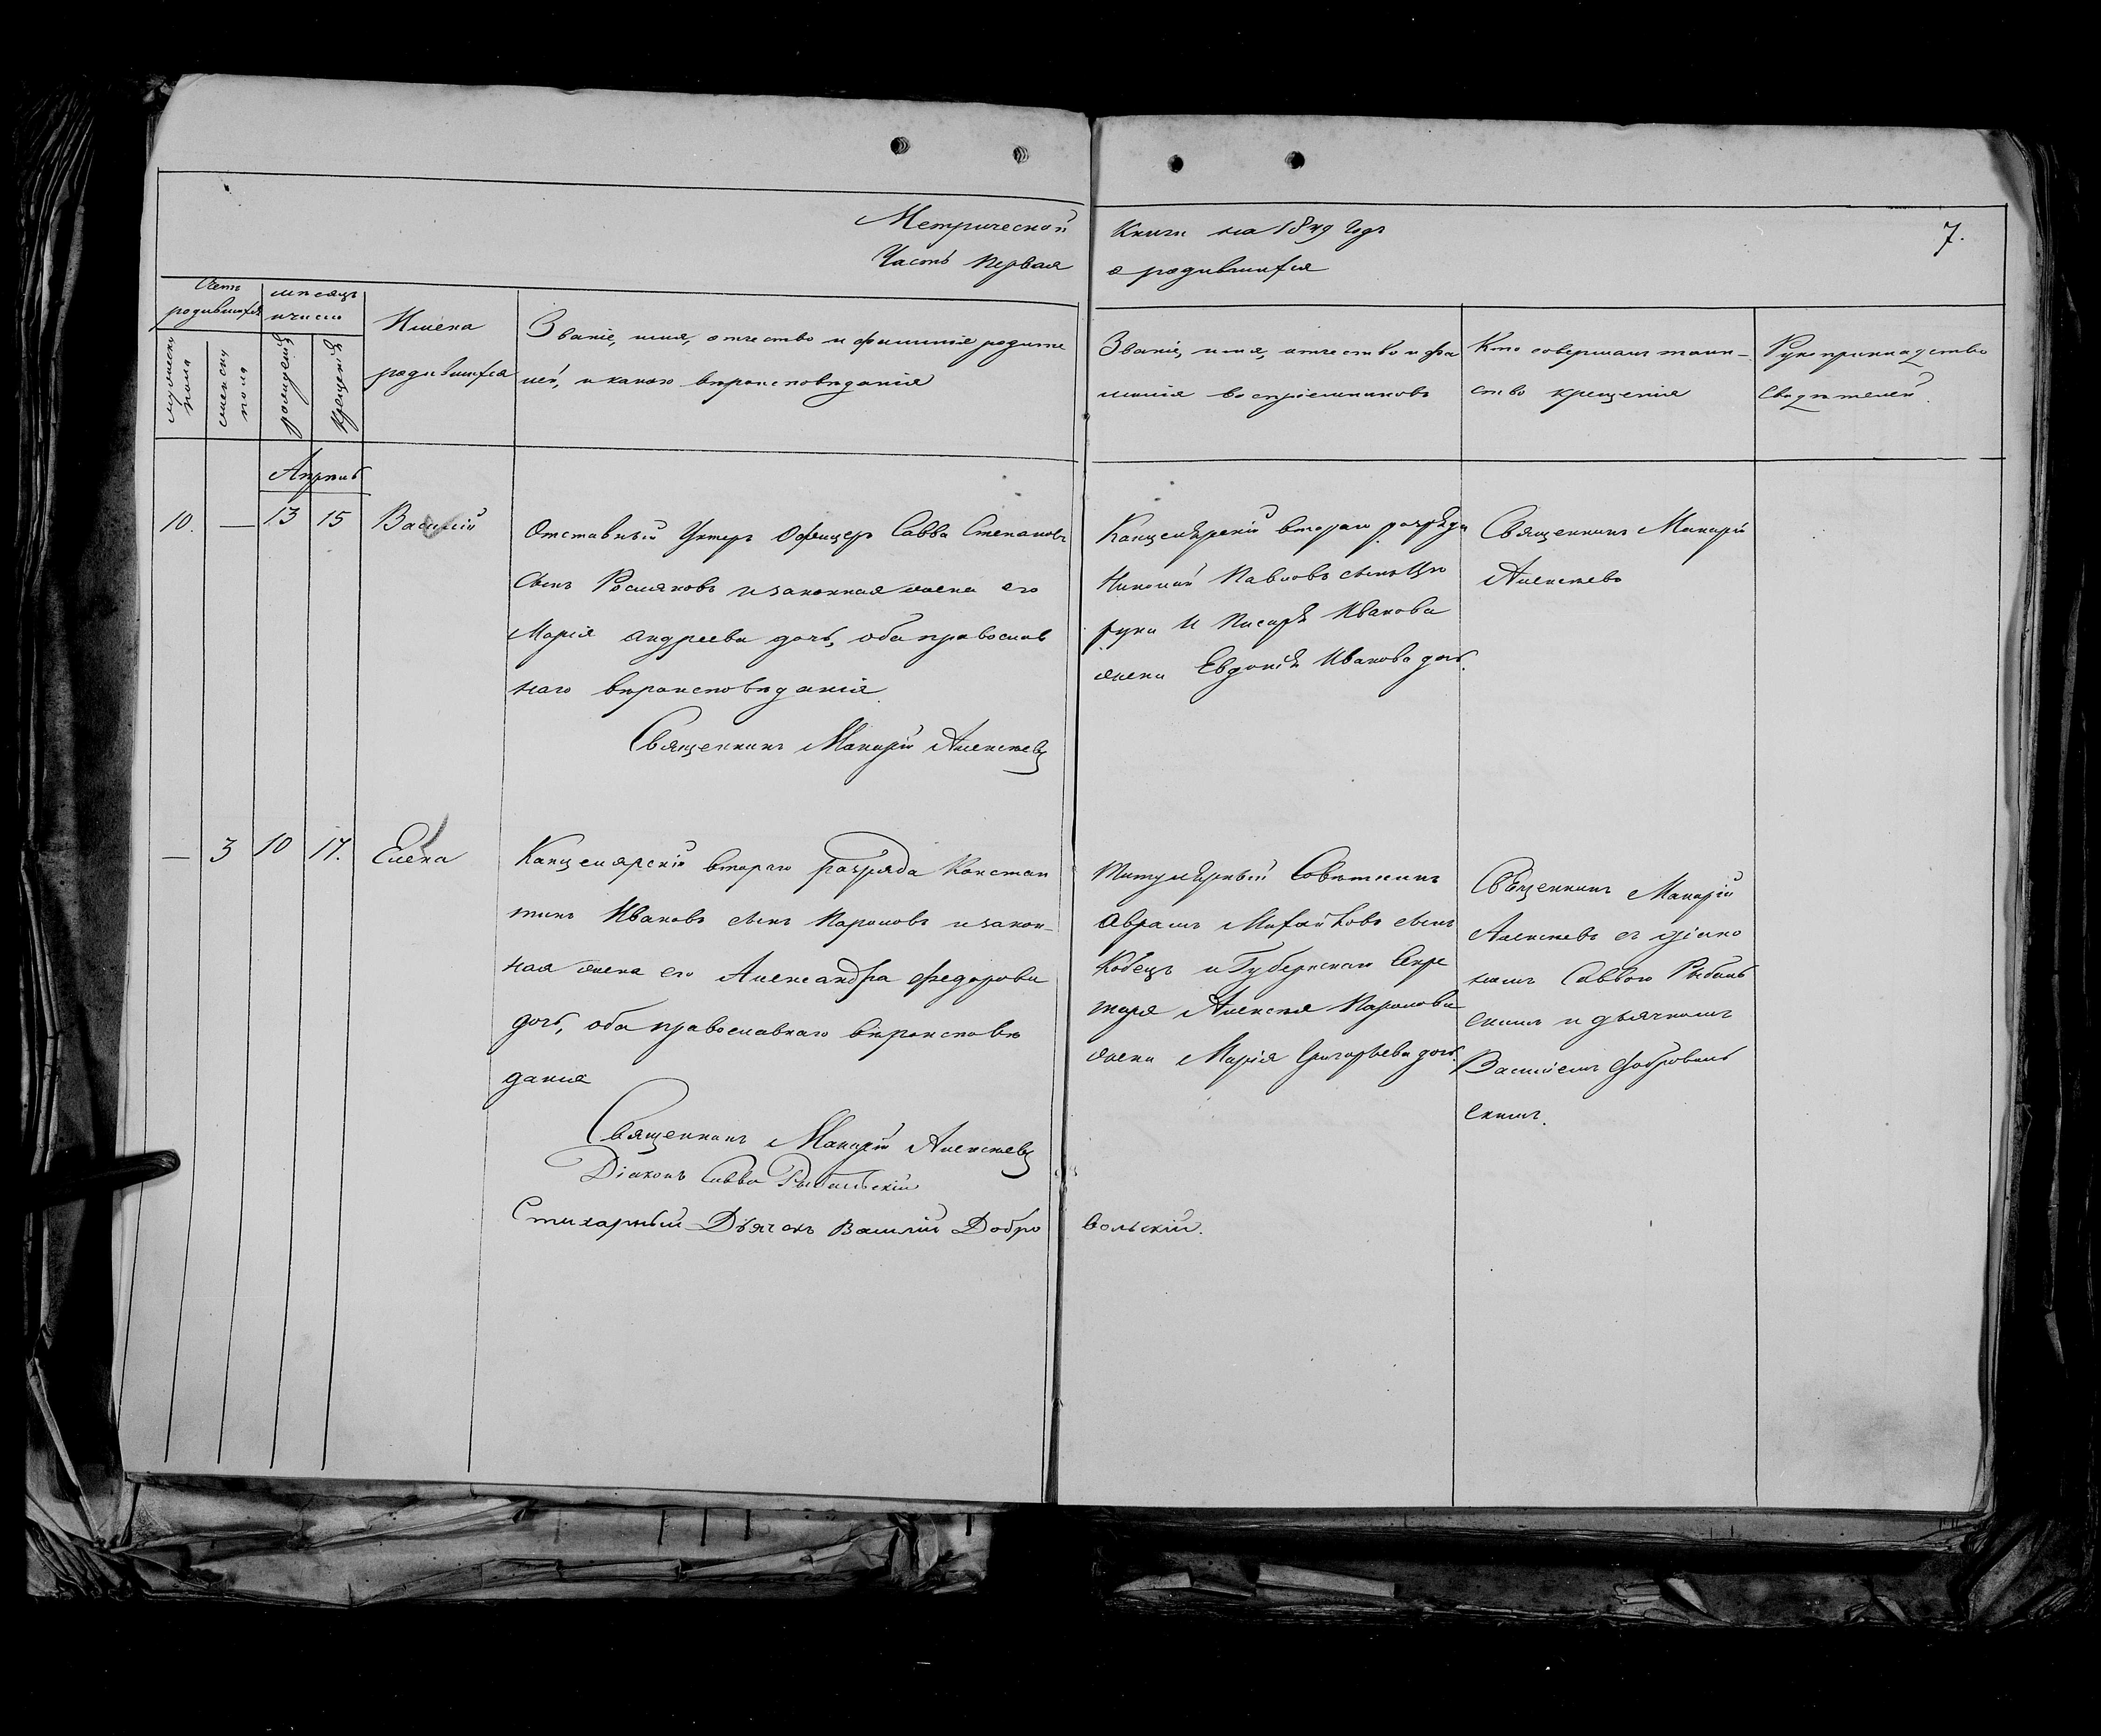 Метрической
Часть первая
Книги на 1849 годъ
о родившихся
7.
Счетъ родившихся
мужеска пола
женска пола
месяцъ и число
рожденія
крещенія
Имена
родившихся
Званіе, имя, отчество и фамилія родите
лей, и какого вѣроисповѣданія
Званіе, имя, отчество и фа
милія воспріемниковъ
Кто совершалъ таин-
ство крещенія
Рукоприкладство
Свидѣтелей.
Апрель
10. — 13 15 Василій
Отставный Унтеръ Офицеръ Савва Степановъ
сынъ Росляковъ и законная жена его
Марія Андреева дочь, оба православ
наго вѣроисповѣданія.
Священникъ Макарій Алексѣевъ
Канцелярскій втораго разряда
Николай Павловъ сынъ Цю
рупа И Писаря Иванова
жена Евдокія Иванова доч.
Священникъ Макарій
Алексѣевъ
— 3 10 17. Елена
Канцелярскій втораго разряда Констан
тинъ Ивановъ сынъ Паромовъ и закон-
ная жена его Александра Федорова
дочь, оба православнаго вѣроисповѣ
данія
Священникъ Макарій Алексѣевъ
Діаконъ Савва Рыбальскій
Стихарный Дьячекъ Василій Добро
вольскій.
Титулярный Совѣтникъ
Аврамъ Михайловъ сынъ
Кобецъ и Губернскаго Секре
таря Алексѣя Паромова
жена Марія Григорьева доч.
Священникъ Макарій
Алексѣевъ съ діако
номъ Саввою Рыбаль
скимъ и дьячкомъ
Василіемъ Доброволь
скимъ.